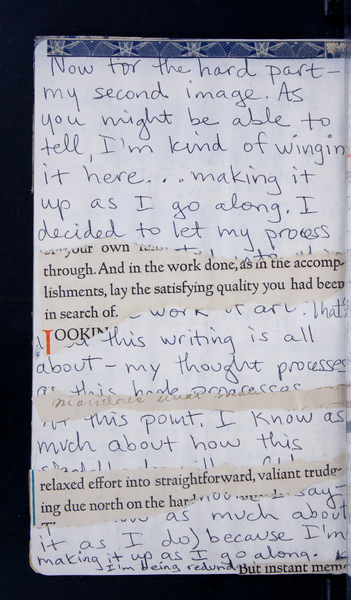 Now for the hard part –
my second image. As
you might be able to
tell, I'm kind of wingin
it here... making it
up as I go along. I
decided to let my process
your own
through. And in the work done, as in the accomp-
lishments, lay the satisfying quality you had been
in search of.
work of art. That's
LOOKIN
this writing is all
about – my thought processes
as this book progresses
at this point, I know as
much about how this
relaxed effort into straightforward, valiant trudg-
ing due north on the hard
say–
as much about
it as I do) because I'm
making it up as I go along.
I'm being redund
But instant mem